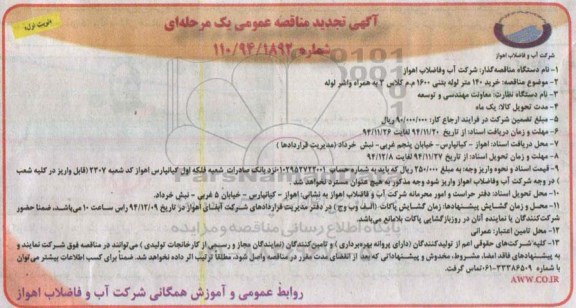 آگهی تجدید مناقصه عمومی یک مرحله‌ای
شماره ۱۱۰/۹۴/۱۸۹۲
نوبت اول
شرکت آب و فاضلاب اهواز
۱- نام دستگاه مناقصه‌گذار: شرکت آب وفاضلاب اهواز
۲- موضوع مناقصه: خرید ۱۴۰ متر لوله بتنی ۱۶۰۰ م.م کلاس ۳ به همراه واشر لوله
۳- نام دستگاه نظارت: معاونت مهندسی و توسعه
۴- مدت تحویل کالا: یک ماه
۵- مبلغ تضمین شرکت در فرایند ارجاع کار: ۹۰/۰۰۰/۰۰۰ ریال
۶- مهلت و زمان دریافت اسناد: از تاریخ ۹۴/۱۱/۲۰ لغایت ۹۴/۱۱/۲۶
۷- محل دریافت اسناد: اهواز - کیانپارس - خیابان پنجم غربی- نبش خرداد (مدیریت قراردادها)
۸- مهلت و زمان تحویل اسناد: از تاریخ ۹۴/۱۱/۲۷ لغایت ۹۴/۱۲/۸
۹- قیمت اسناد و نحوه واریز وجه: به مبلغ ۲۵۰/۰۰۰ ریال که باید به شماره حساب ۰۱۰۲۹۵۲۷۲۳۰۰۱ نزد بانک صادرات شعبه فلکه اول کیانپارس اهواز کد شعبه ۲۳۰۷ (قابل واریز در کلیه شعب
) در وجه شرکت آب وفاضلاب اهواز واریز شود وجه مذکور به هیچ عنوان مسترد نخواهد شد.
۱۰- محل تحویل اسناد: دفتر حراست و امور محرمانه شرکت آب و فاضلاب اهواز به نشانی: اهواز - کیانپارس - خیابان ۵ غربی - نبش خرداد.
۱۱- محل و زمان گشایش پیشنهادها: زمان گشایش پاکات (الف و ب و ج) در دفتر مدیریت قراردادهای شرکت آبفای اهواز در تاریخ ۹۴/۱۲/۰۹ راس ساعت ۱۰ می‌باشد، ضمنا حضور
شرکت‌کنندگان یا نماینده آنان در روزبازگشایی پاکات بلامانع می‌باشد.
۱۲- محل تامین اعتبار: عمرانی
۱۳- کلیه شرکت‌های حقوقی اعم از تولیدکنندگان (دارای پروانه بهره‌برداری) و تامین‌کنندگان (نمایندگان مجاز و رسمی از کارخانجات تولیدی) می‌توانند در مناقصه فوق شرکت نمایند و
به پیشنهادهای فاقد امضا، مشروط، مخدوش و پیشنهاداتی که بعد از انقضای مدت مقرر در مناقصه واصل شود، مطلقا ترتیب اثر داده نخواهد شد. ضمنا برای کسب اطلاعات بیشتر می‌توان
با شماره ۳۳۳۸۶۵۰۹-۰۶۱ تماس گرفت.
AWW.CO.IR
روابط عمومی و آموزش همگانی شرکت آب و فاضلاب اهواز
پایگاه اطلاع رسانی مناقصه و مزایده